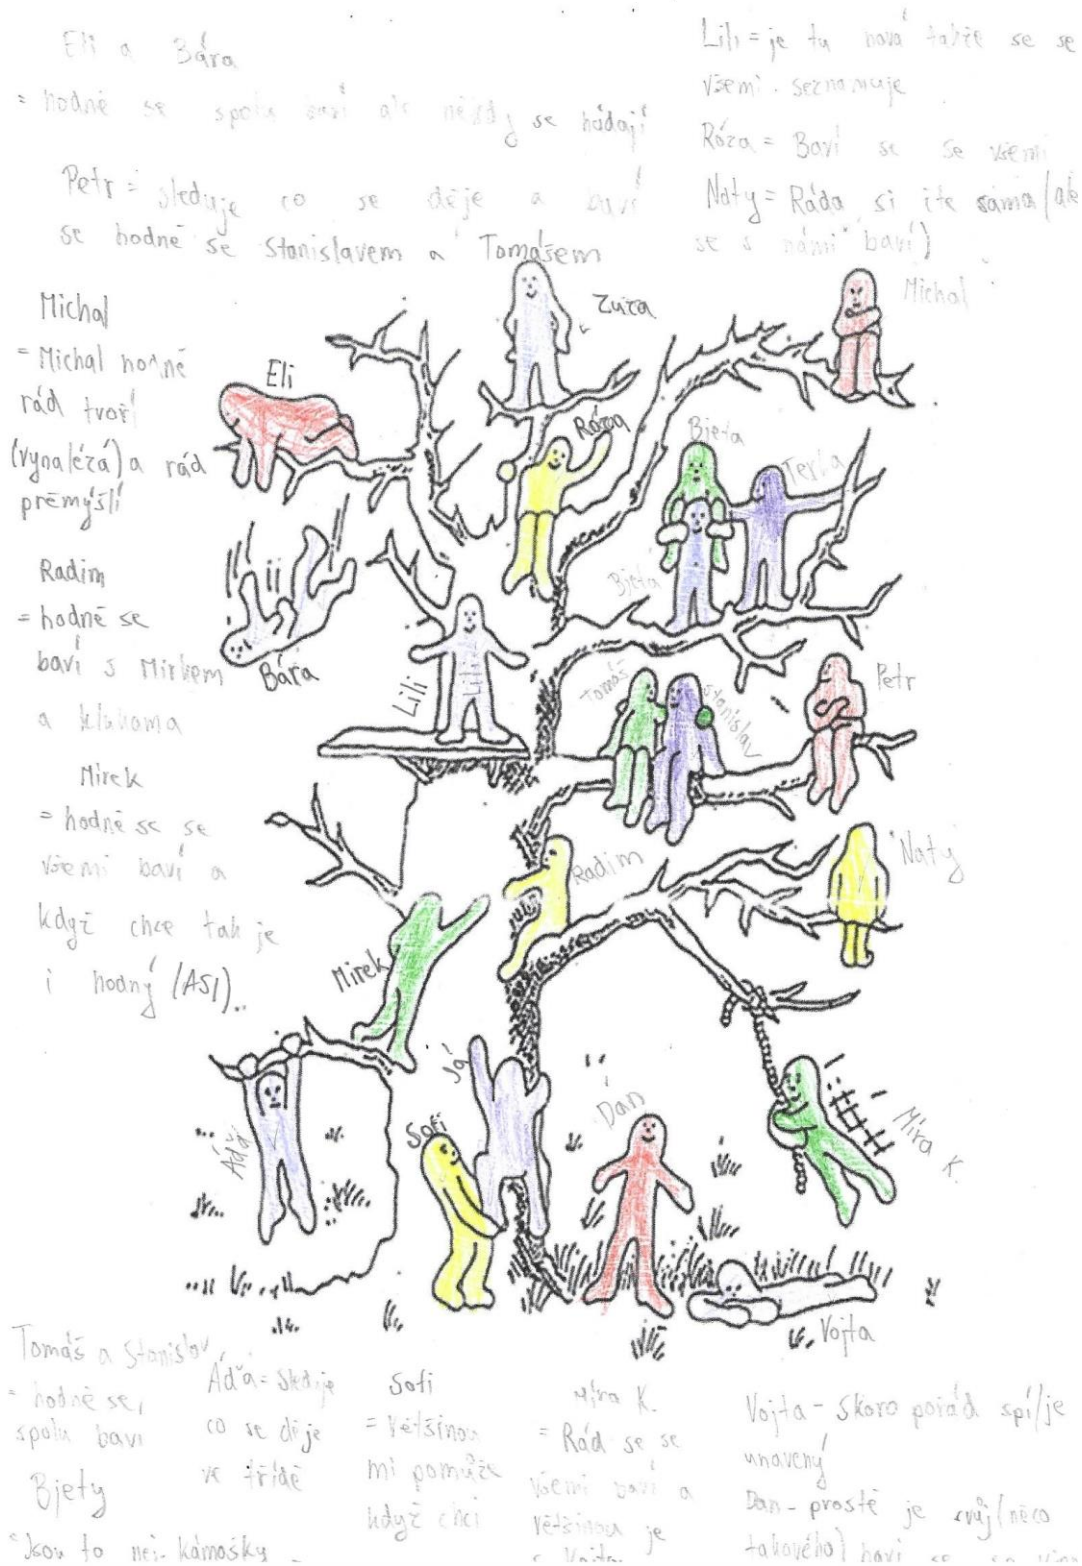 Eli a Bára
= hodně se spolu baví ale někdy se hádají
Petr = sleduje co se děje a baví
se hodně se Stanislavem a Tomášem
Lili = je tu nová takže se se
všemi seznamuje
Róza = Baví se se všemi
Naty = Ráda si čte sama (ale
se s námi baví)
Michal
= Michal hodně
rád tvoří
(vynalézá) a rád
přemýšlí
Radim
= hodně se
baví s Mirkem
a klukama
Mirek
= hodně se se
všemi baví a
když chce tak je
i hodný (ASI)..
Zuza
Michal
Eli
Róza
Bjeta
Terka
Bjeta
Bára
Lili
Lili
Tomáš
Stanislav
Petr
Radim
Naty
Mirek
Já
Áďa
Sofi
Dan
Míra K.
Vojta
Tomáš a Stanislav
= hodně se
spolu baví
Bjety
Jsou to nej. kámošky
Áďa = sleduje
co se děje
ve třídě
Sofi
= většinou
mi pomůže
když chci
Míra K.
= Rád se se
všemi baví a
většinou je
s Vojta
Vojta - skoro pořád spí/je
unavený
Dan - prostě je svůj (něco
takového) baví se se